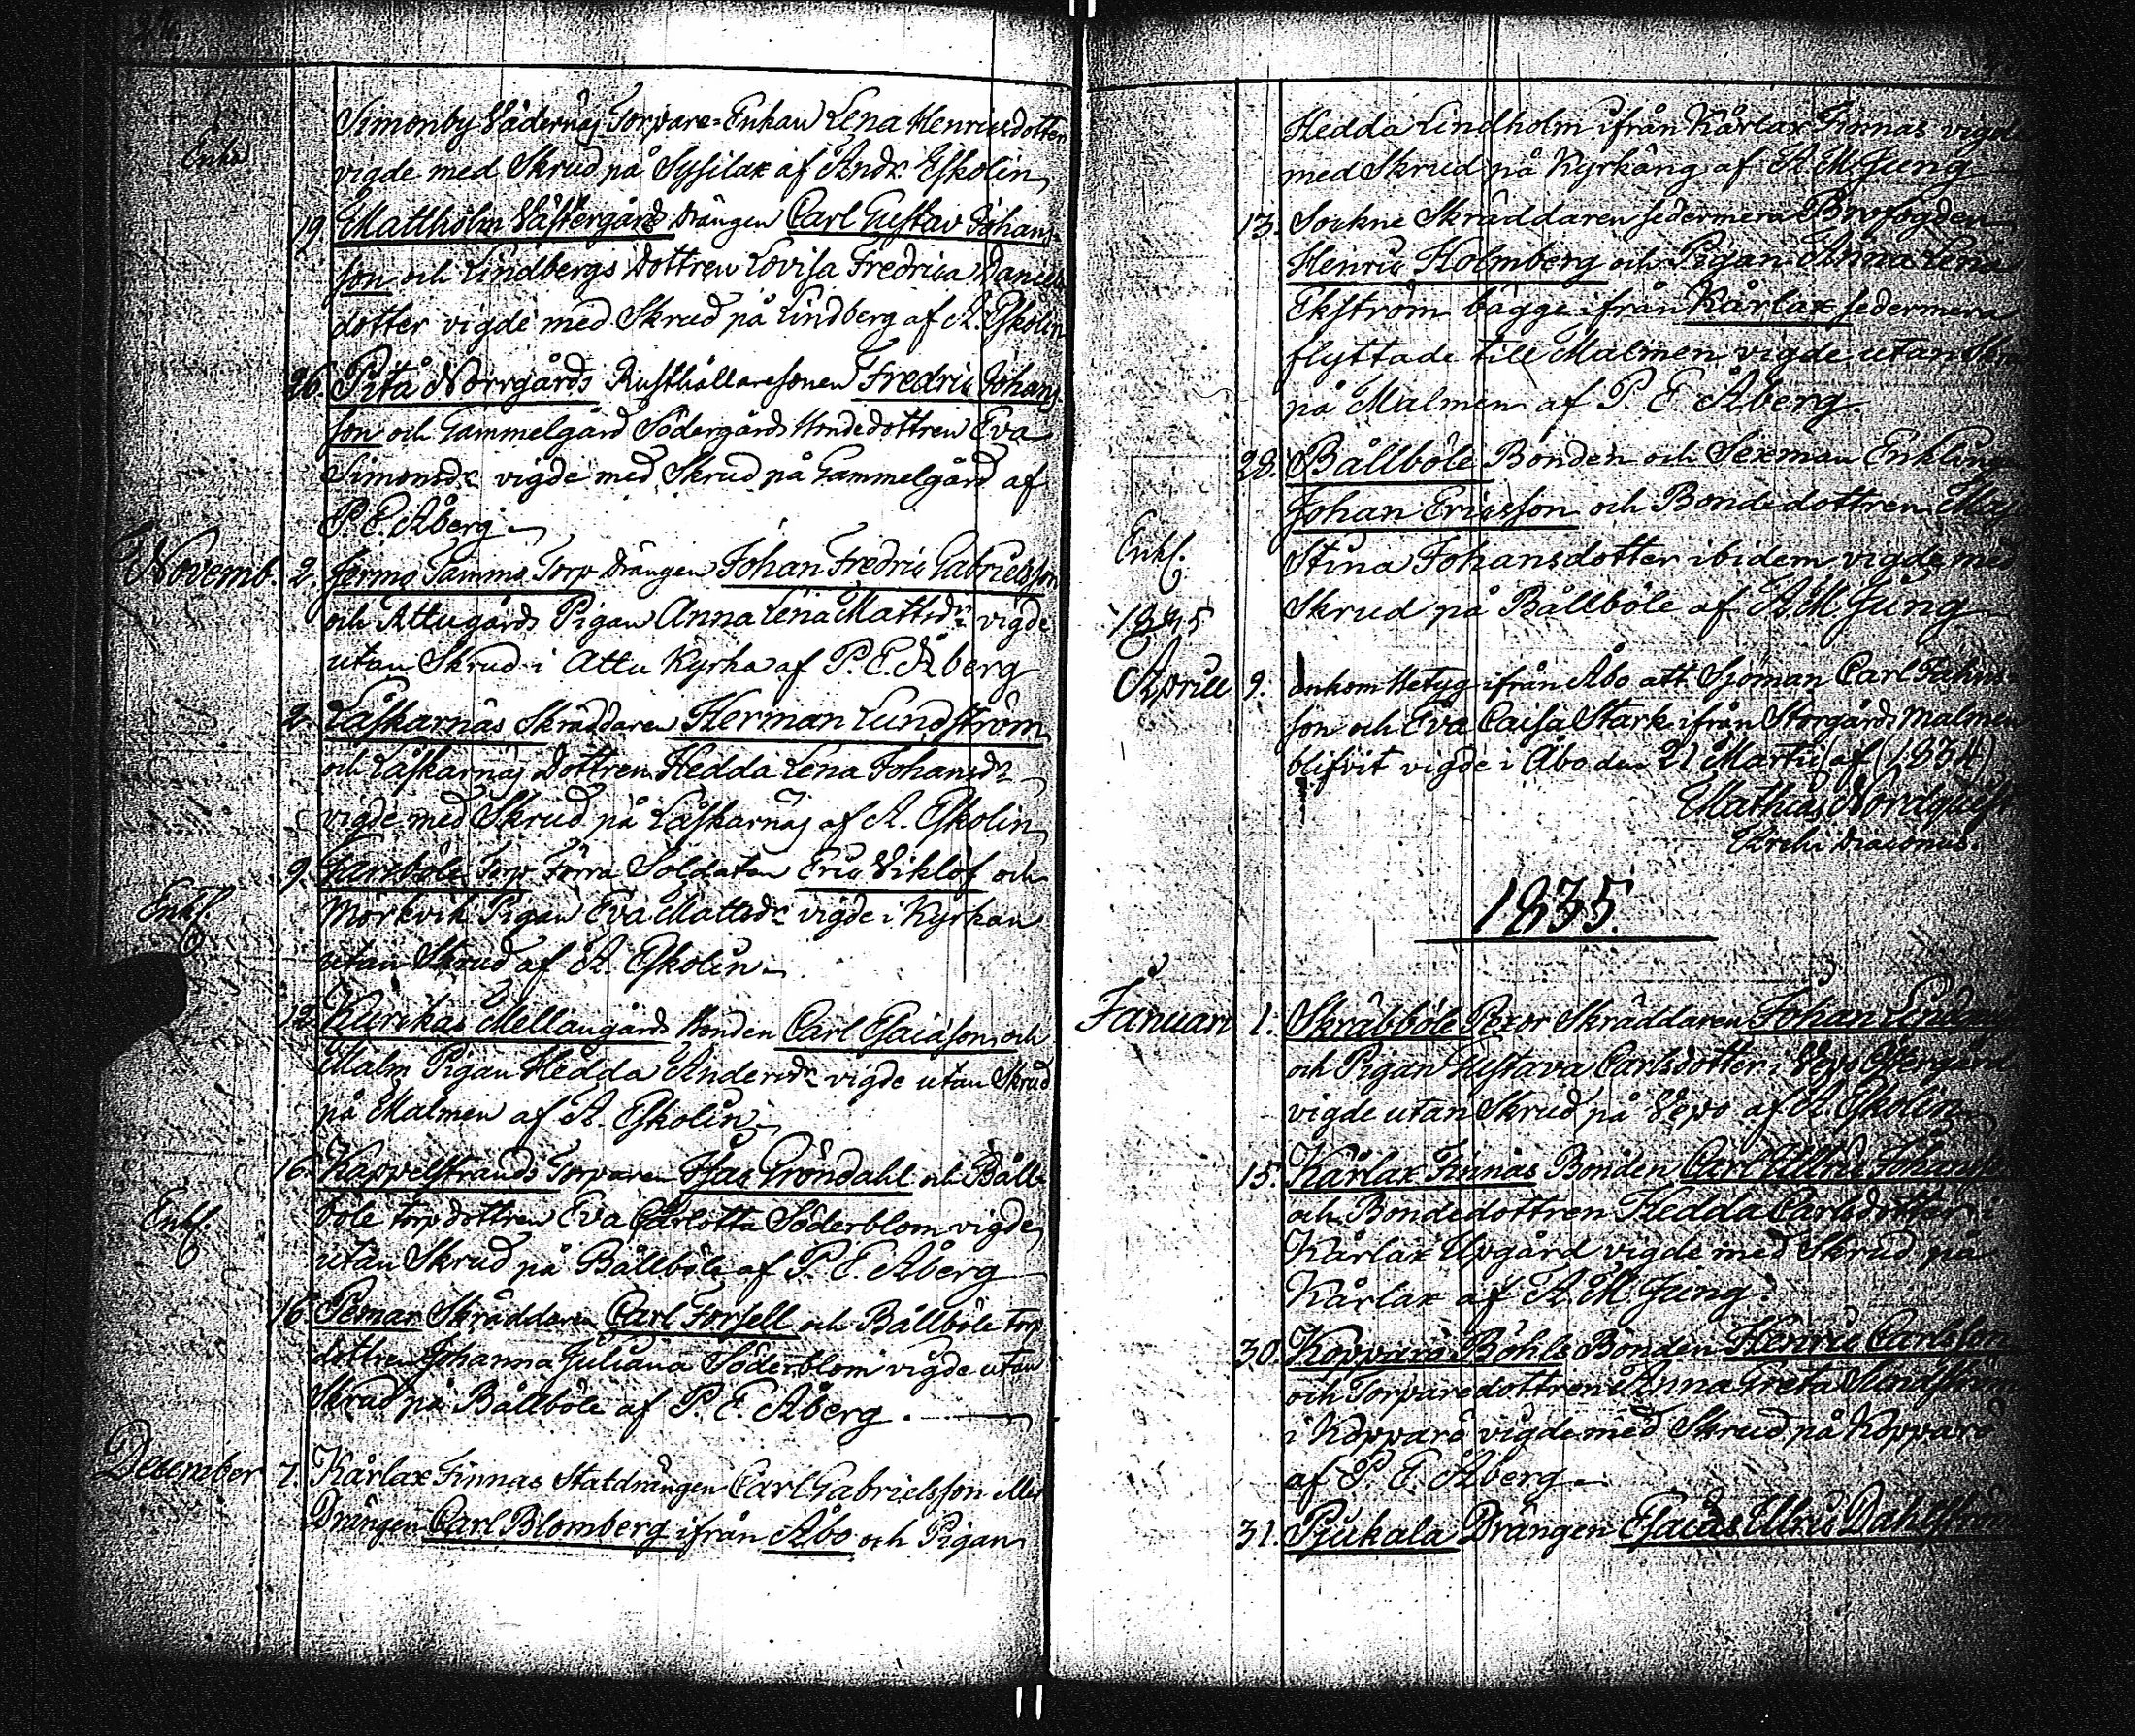 Simonby Södernäs Torpare-Enkan Lena Henricsdotter
Enka
vigde med Skrud på Sysilax af Andr. Eskolin
19 Mattholm Västergårds Drängen Carl Gustav Johans-
son och Lindbergs Dottren Lovisa Fredrica Daniels
dotter vigde med Skrud på Lindberg af A. Eskolin
26. Pitå Norrgårds Rusthållaresonen Fredric Johans
son och Gammelgård Södergårds Bondedottren Eva
Simonsdr vigde med Skrud på Gammelgård af
P. E. Åberg
Novemb. 2. Jermo Tammo Torp Drängen Johan Fredric Gabrielsson
och Attugårds Pigan Anna Lena Mattsdr vigde
utan Skrud i Attu Kyrka af P. E. Åberg
2. Läskarnäs Skräddaren Herman Lundström
och Läskarnäs Dottren Hedda Lena Johansdr
vigde med Skrud på Läskarnäs af A. Eskolin
9. Torp Förra Soldaten Eric Viklöf och
Enkl.
Mörkvik Pigan Eva Mattsdr vigde i Kyrkan
utan Skrud af A. Eskolin
12. Kurckas Mellangårds Bonden Carl Esaiasson och
Malm Pigan Hedda Andersdr vigde utan Skrud
på Malmen af A. Eskolin
16. Kappelstrands Torparen Esas Gröndahl och Båll-
Enkl.
böle torpdottren Eva Carlotta Söderblom vigde
utan Skrud på Bållböle af P. E. Åberg
16 Pemar Skräddaren Carl Forsell och Bållböle torp
dottren Johanna Juliana Söderblom vigde utan
Skrud på Bållböle af P. E. Åberg.
December 7. Kårlax Finnas Statdrängen Carl Gabrielsson
Drängen Carl Blomberg ifrån Åbo och Pigan
Hedda Lindholm ifrån Kårlax Finnas vigde
med Skrud på Kyrkäng af A. M. Jung
13. Sockne Skräddaren sedermera Brofogden
Henric Holmberg och Pigan Anna Lena
Ekström bägge ifrån Kårlax sedermera
flyttade till Malmen vigde utan
på Malmen af P. E. Åberg.
28. Bållböle Bonden och Sexman Enkling
Johan Ericsson och Bondedottren Maj
Enkl.
Stina Johansdotter ibidem vigde med
Skrud på Bållböle af A. M. Jung
1835
Aprill 9. Ankom Betyg ifrån Åbo att Sjöman Carl
son och Eva Caisa Stark ifrån Storgårds Malmen
blifvit vigde i Åbo den 21 Martii af (1834)
Mathias Nordquist
Archi Diaconus.
1835.
Januari 1. Skräbböle Pexor Skräddaren Johan
och Pigan Gustava Carlsdotter i Vepo Östergård
vigde utan Skrud på Vepo af A. Eskolin
15. Kårlax Finnas Bonden Carl Ulric Johans
och Bondedottren Hedda Carlsdotter i
Kårlax Upgård vigde med Skrud på
Kårlax af A. M. Jung.
30. Kopparö Böhls Bonden Henric Carlsson
och Torparedottren Anna Greta
i Kopparö vigde med Skrud på Kopparö
af P. E. Åberg
31. Pjukala Drängen Esaias Ulric Dahlström